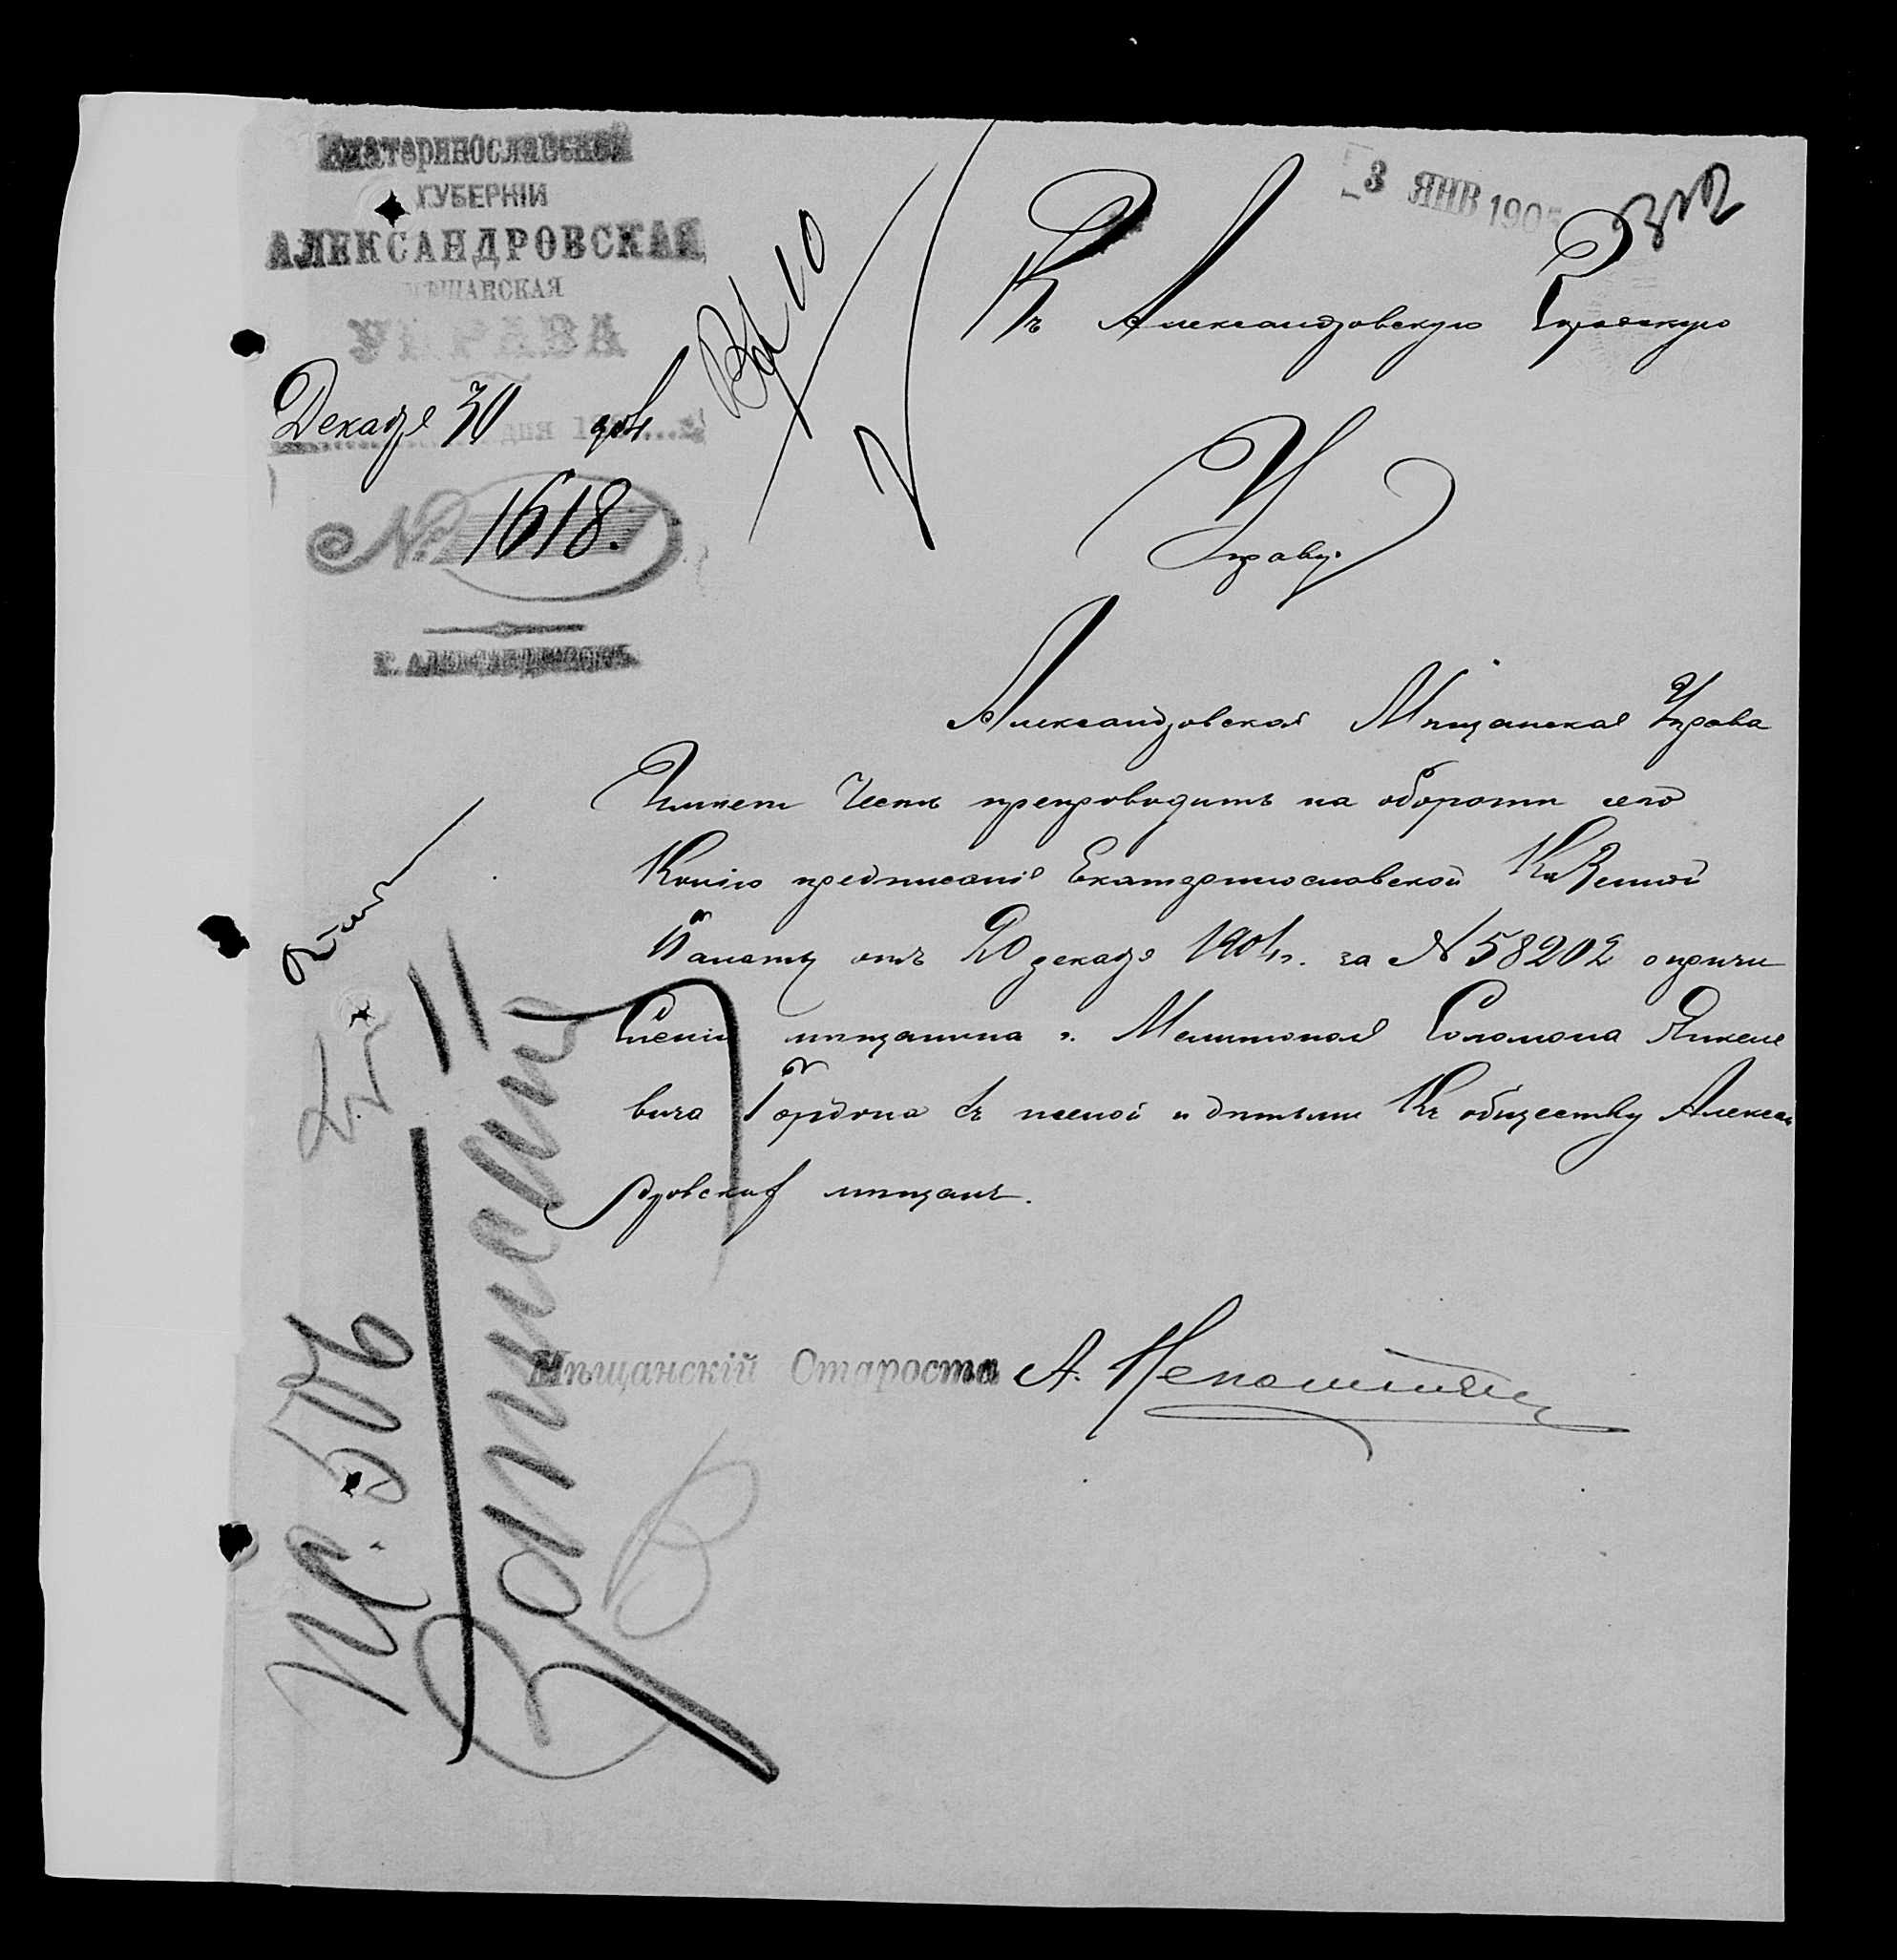 Екатеринославской
ГУБЕРНІИ
АЛЕКСАНДРОВСКАЯ
МѢЩАНСКАЯ
УПРАВА
Декабря 30 дня 1904
№ 1618.
Г. АЛЕКСАНДРОВСКЪ
3 ЯНВ 1905
Въ Александровскую Городскую
Управу.
Александровская Мѣщанская Управа
Имѣетъ Честь препроводить на оборотѣ сего
Копію предписанія Екатеринославской Казенной
Палаты отъ 20 декабря 1904 г. за № 58202 о причи
сленіи мѣщанина г. Мелитополя Соломона Янкеле
вича Гордона съ женой и дѣтьми Къ обществу Алексан
дровскихъ мѣщанъ.
Мѣщанскій Староста А.
11
506